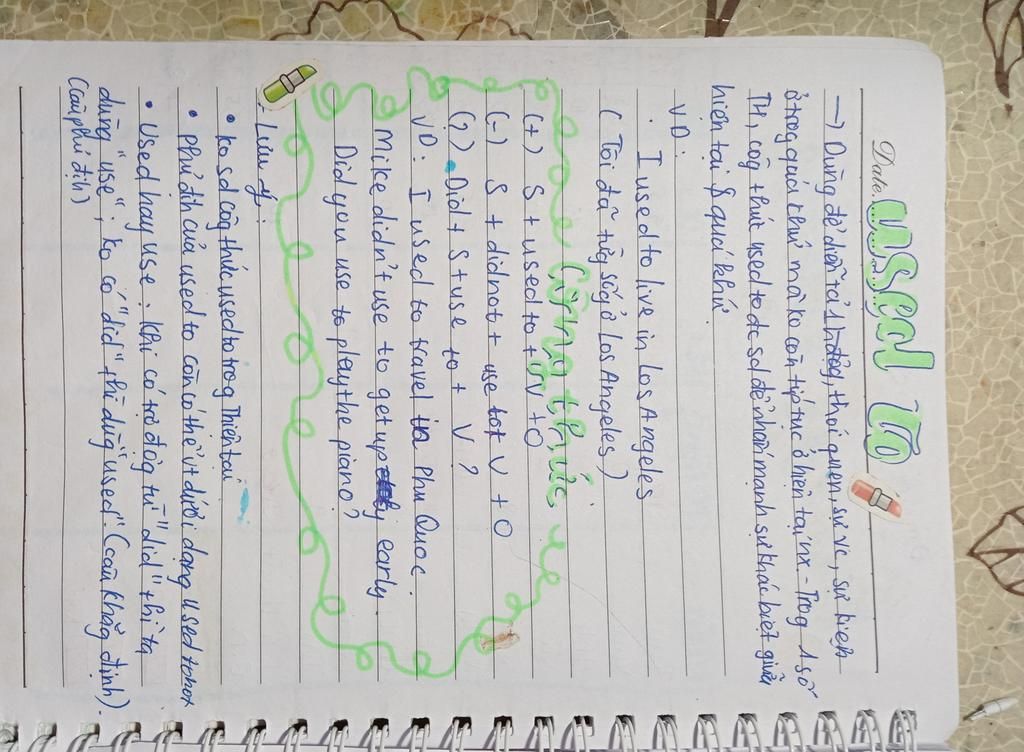 Date.
Used To
→ Dùng để diễn tả 1 hđộg, thói quen, sự vc, sự kiện
ở trog quá khứ mà ko còn tiếp tục ở hiện tại nx - Trog 1 số
TH, côg thức used to đc sd để nhấn mạnh sự khác biệt giữa
hiện tại & quá khứ.
VD:
. I used to live in Los Angeles
( Tôi đã từng sốg ở Los Angeles)
Công thức
(+) S + used to + V + O
(-) S + did not + use to + V + O
(?) Did + S + use to + V ?
VD: I used to travel in Phu Quoc.
Mike didn't use to get up early.
Did you use to play the piano?
- Lưu ý:
• ko sd côg thức used to trog Thiện tại
• phủ địh của used to còn có thể vt dưới dạng used to not
• Used hay use: khi có trợ độg từ "did" thì ta
dùng "use", ko có "did" thì dùg "used" (câu khẳng định).
(câu phủ địh)